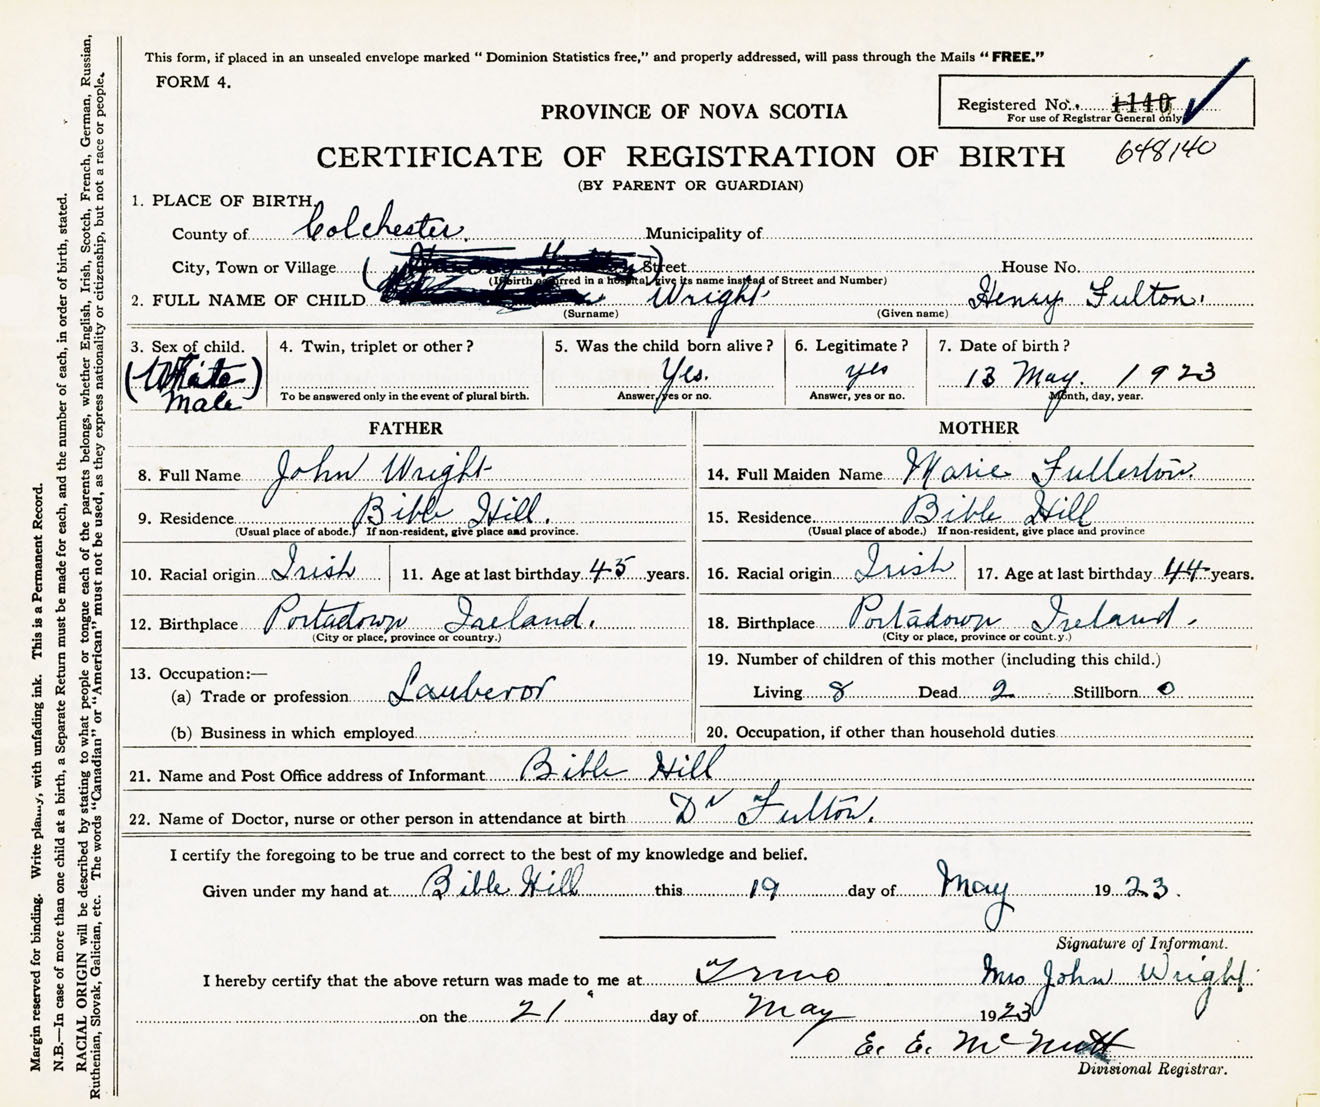 This form, if placed in an unsealed envelope marked "Dominion Statistics free," and properly addressed, will pass through the Mails "FREE."
FORM 4.
Registered No. 1140
For use of Registrar General only
PROVINCE OF NOVA SCOTIA
648140
CERTIFICATE OF REGISTRATION OF BIRTH
(BY PARENT OR GUARDIAN)
1. PLACE OF BIRTH.
County of Colchester. Municipality of
City, Town or Village Street House No.
(If birth occurred in a hospital, give its name instead of Street and Number)
2. FULL NAME OF CHILD Wright Henry Fulton.
(Surname) (Given name)
3. Sex of child. 4. Twin, triplet or other? 5. Was the child born alive? 6. Legitimate? 7. Date of birth?
(White) Yes. yes 13 May. 1923
Male To be answered only in the event of plural birth. Answer, yes or no. Answer, yes or no. Month, day, year.
FATHER MOTHER
8. Full Name John Wright 14. Full Maiden Name Marie Fullerton.
9. Residence Bible Hill. 15. Residence Bible Hill
(Usual place of abode.) If non-resident, give place and province. (Usual place of abode.) If non-resident, give place and province
10. Racial origin Irish 11. Age at last birthday 45 years. 16. Racial origin Irish 17. Age at last birthday 44 years.
12. Birthplace Portadown Ireland. 18. Birthplace Portadown Ireland.
(City or place, province or country.) (City or place, province or count.y.)
13. Occupation:— 19. Number of children of this mother (including this child.)
(a) Trade or profession Lauberor Living 8 Dead 2 Stillborn 0
(b) Business in which employed 20. Occupation, if other than household duties
21. Name and Post Office address of Informant Bible Hill
22. Name of Doctor, nurse or other person in attendance at birth Dr Fulton.
I certify the foregoing to be true and correct to the best of my knowledge and belief.
Given under my hand at Bible Hill this 19 day of May 1923.
Signature of Informant.
I hereby certify that the above return was made to me at Truro Mrs John Wright
on the 21 day of May 1923
E. E. McNutt
Divisional Registrar.
Margin reserved for binding. Write plainly, with unfading ink. This is a Permanent Record.
N.B.—In case of more than one child at a birth, a Separate Return must be made for each, and the number of each, in order of birth, stated.
RACIAL ORIGIN will be described by stating to what people or tongue each of the parents belongs, whether English, Irish, Scotch, French, German, Russian,
Ruthenian, Slovak, Galician, etc. The words "Canadian" or "American" must not be used, as they express nationality or citizenship, but not a race or people.